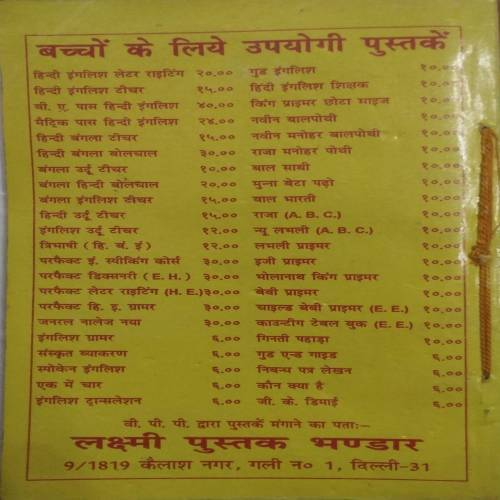 बच्चों के लिये उपयोगी पुस्तकें
हिन्दी इंगलिश लेटर राइटिंग २०.००
हिन्दी इंगलिश टीचर १५.००
बी. ए. पास हिन्दी इंगलिश ४०.००
मैट्रिक पास हिन्दी इंगलिश २४.००
हिन्दी बंगला टीचर १५.००
हिन्दी बंगला बोलचाल ३०.००
बंगला उर्दू टीचर १०.००
बंगला हिन्दी बोलचाल २०.००
बंगला इंगलिश टीचर १५.००
हिन्दी उर्दू टीचर १५.००
इंगलिश उर्दू टीचर १२.००
त्रिभाषी ( हि. बं. इं ) १२.००
परफैक्ट इं. स्पीकिंग कोर्स ३०.००
परफैक्ट डिक्सनरी ( E. H. ) ३०.००
परफैक्ट लेटर राइटिंग (H. E.)३०.००
परफैक्ट हि. इ. ग्रामर ३०.००
जनरल नालेज नया ३०.००
इंगलिश ग्रामर ६.००
संस्कृत व्याकरण ६.००
स्पोकेन इंगलिश ६.००
एक में चार ६.००
इंगलिश ट्रान्सलेशन ६.००
गुड इंगलिश १०.००
हिंदी इंगलिश शिक्षक १०.००
किंग प्राइमर छोटा साइज १०.००
नवीन बालपोथी १०.००
नवीन मनोहर बालपोथी १०.००
राजा मनोहर पोथी १०.००
बाल साथी १०.००
मुन्ना बेटा पढ़ो १०.००
बाल भारती १०.००
राजा (A. B. C.) १०.००
न्यू लभली (A. B. C.) १०.००
लभली प्राइमर १०.००
इजी प्राइमर १०.००
भोलानाथ किंग प्राइमर १०.००
बेबी प्राइमर १०.००
चाइल्ड बेबी प्राइमर (E. E.) १०.००
काउन्टींग टेबल बुक (E. E.) १०.००
गिनती पहाड़ा १०.००
गुड एन्ड गाइड ६.००
निबन्ध पत्र लेखन ६.००
कौन क्या है ६.००
जी. के. डिमाई ६.००
वी. पी. पी. द्वारा पुस्तकें मंगाने का पता:–
लक्ष्मी पुस्तक भण्डार
9/1819 कैलाश नगर, गली न० 1, दिल्ली-31